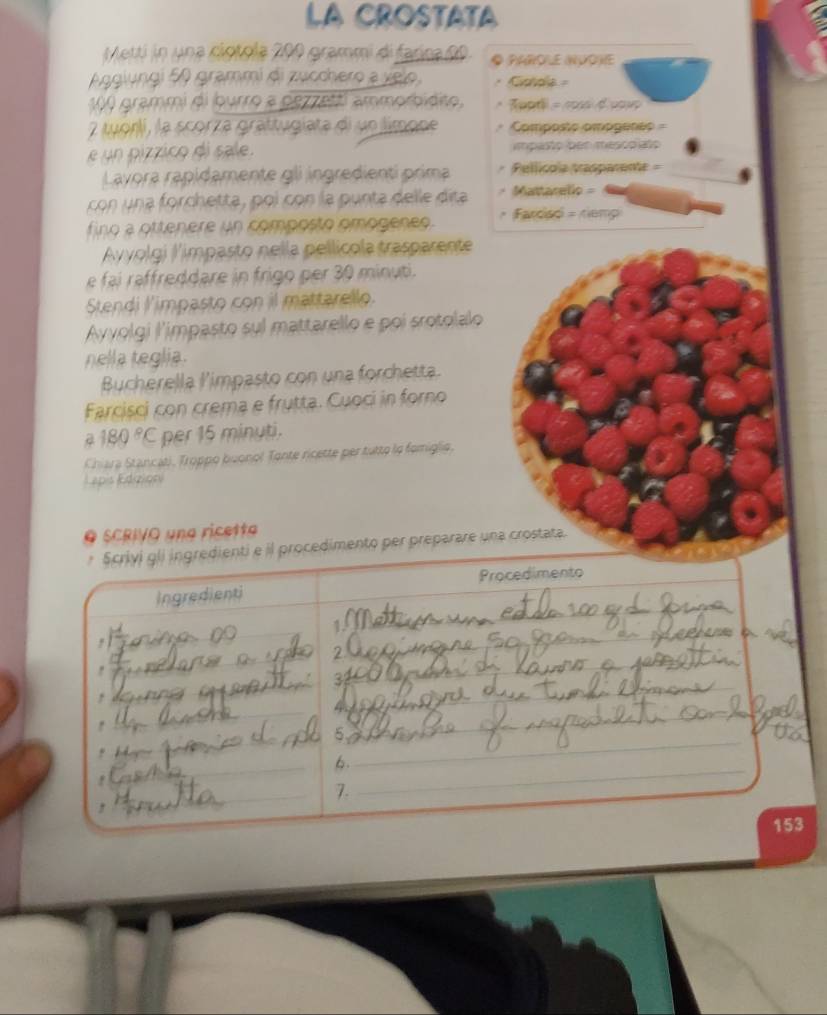 LA CROSTATA
Metti in una ciotola 200 grammi di farina 00.
Aggiungi 50 grammi di zucchero a velo,
100 grammi di burro a pezzetti ammorbidito,
2 tuorli, la scorza grattugiata di un limone
e un pizzico di sale.
Lavora rapidamente gli ingredienti prima
con una forchetta, poi con la punta delle dita
fino a ottenere un composto omogeneo.
Avvolgi l'impasto nella pellicola trasparente
e fai raffreddare in frigo per 30 minuti.
Stendi l'impasto con il mattarello.
Avvolgi l'impasto sul mattarello e poi srotolalo
nella teglia.
Bucherella l'impasto con una forchetta.
Farcisci con crema e frutta. Cuoci in forno
a 180 °C per 15 minuti.
Chiara Stancati, Troppo buono! Tante ricette per tutta la famiglia,
Lapis Edizioni
PAROLE NUOVE
Ciotola =
Tuorli = rossi d'uovo
Composto omogeneo =
impasto ben mescolato
Pellicola trasparente =
Mattarello =
Farcisci = riempi
SCRIVO una ricetta
Scrivi gli ingredienti e il procedimento per preparare una crostata.
Ingredienti
Procedimento
Farina 00
a velo
Un
Un pizzico di sale
Crema
Frutta
1.
2.
3. 100 grammi di burro a pezzettini
4.
5.
6.
7.
153